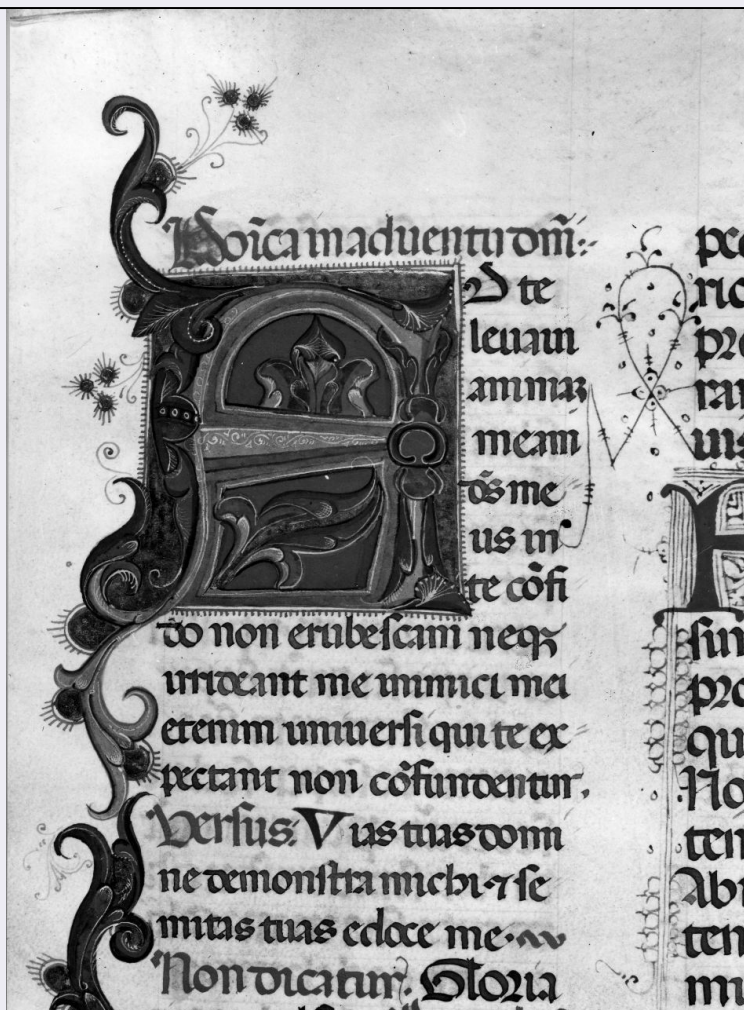 Dōica in aduentu dn̄i:
AD te
leuaui
animaꝫ
meam
dō̄s me
us in
te cōfi
do non erubeſcam neqꝫ
irrideant me inimici mei
etenim uniuerſi qui te ex
pectant non cōfundentur.
Verſus. Vias tuas domi
ne demonſtra michi ⁊ ſe
mitas tuas edoce me.
Non dicatur. Gloria
pro
uis
ſin
pro
qu
No
ten
Abi
ten